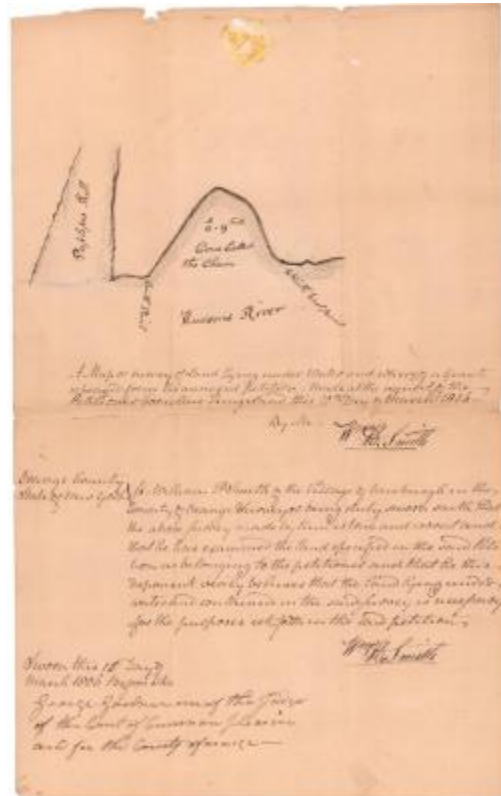 Hill
Cove Called
the Chair
Hudsons River
A Map or survey of Land lying under Water and whereof a Grant
is prayed for in the annexed Petition. Made at the request of the
Petitioner this Day of 1806
By Me
Wm. B. Smith
Orange County
State of New York
William B Smith of the Village of Newburgh in the
County of Orange Surveyor being duly sworn saith that
the above survey made by him is true and correct and
that he has examined the land specified in the said Peti
tion as belonging to the petitioner and that he this
deponent verily believes that the Land lying under
water and contained in the said survey is necessary
for the purposes set forth in the said petition,
Wm. B. Smith
Sworn this 18 Day of
March 1806 before me
George Gardner one of the Judges
of the Court of Common Pleas in
and for the County of Orange